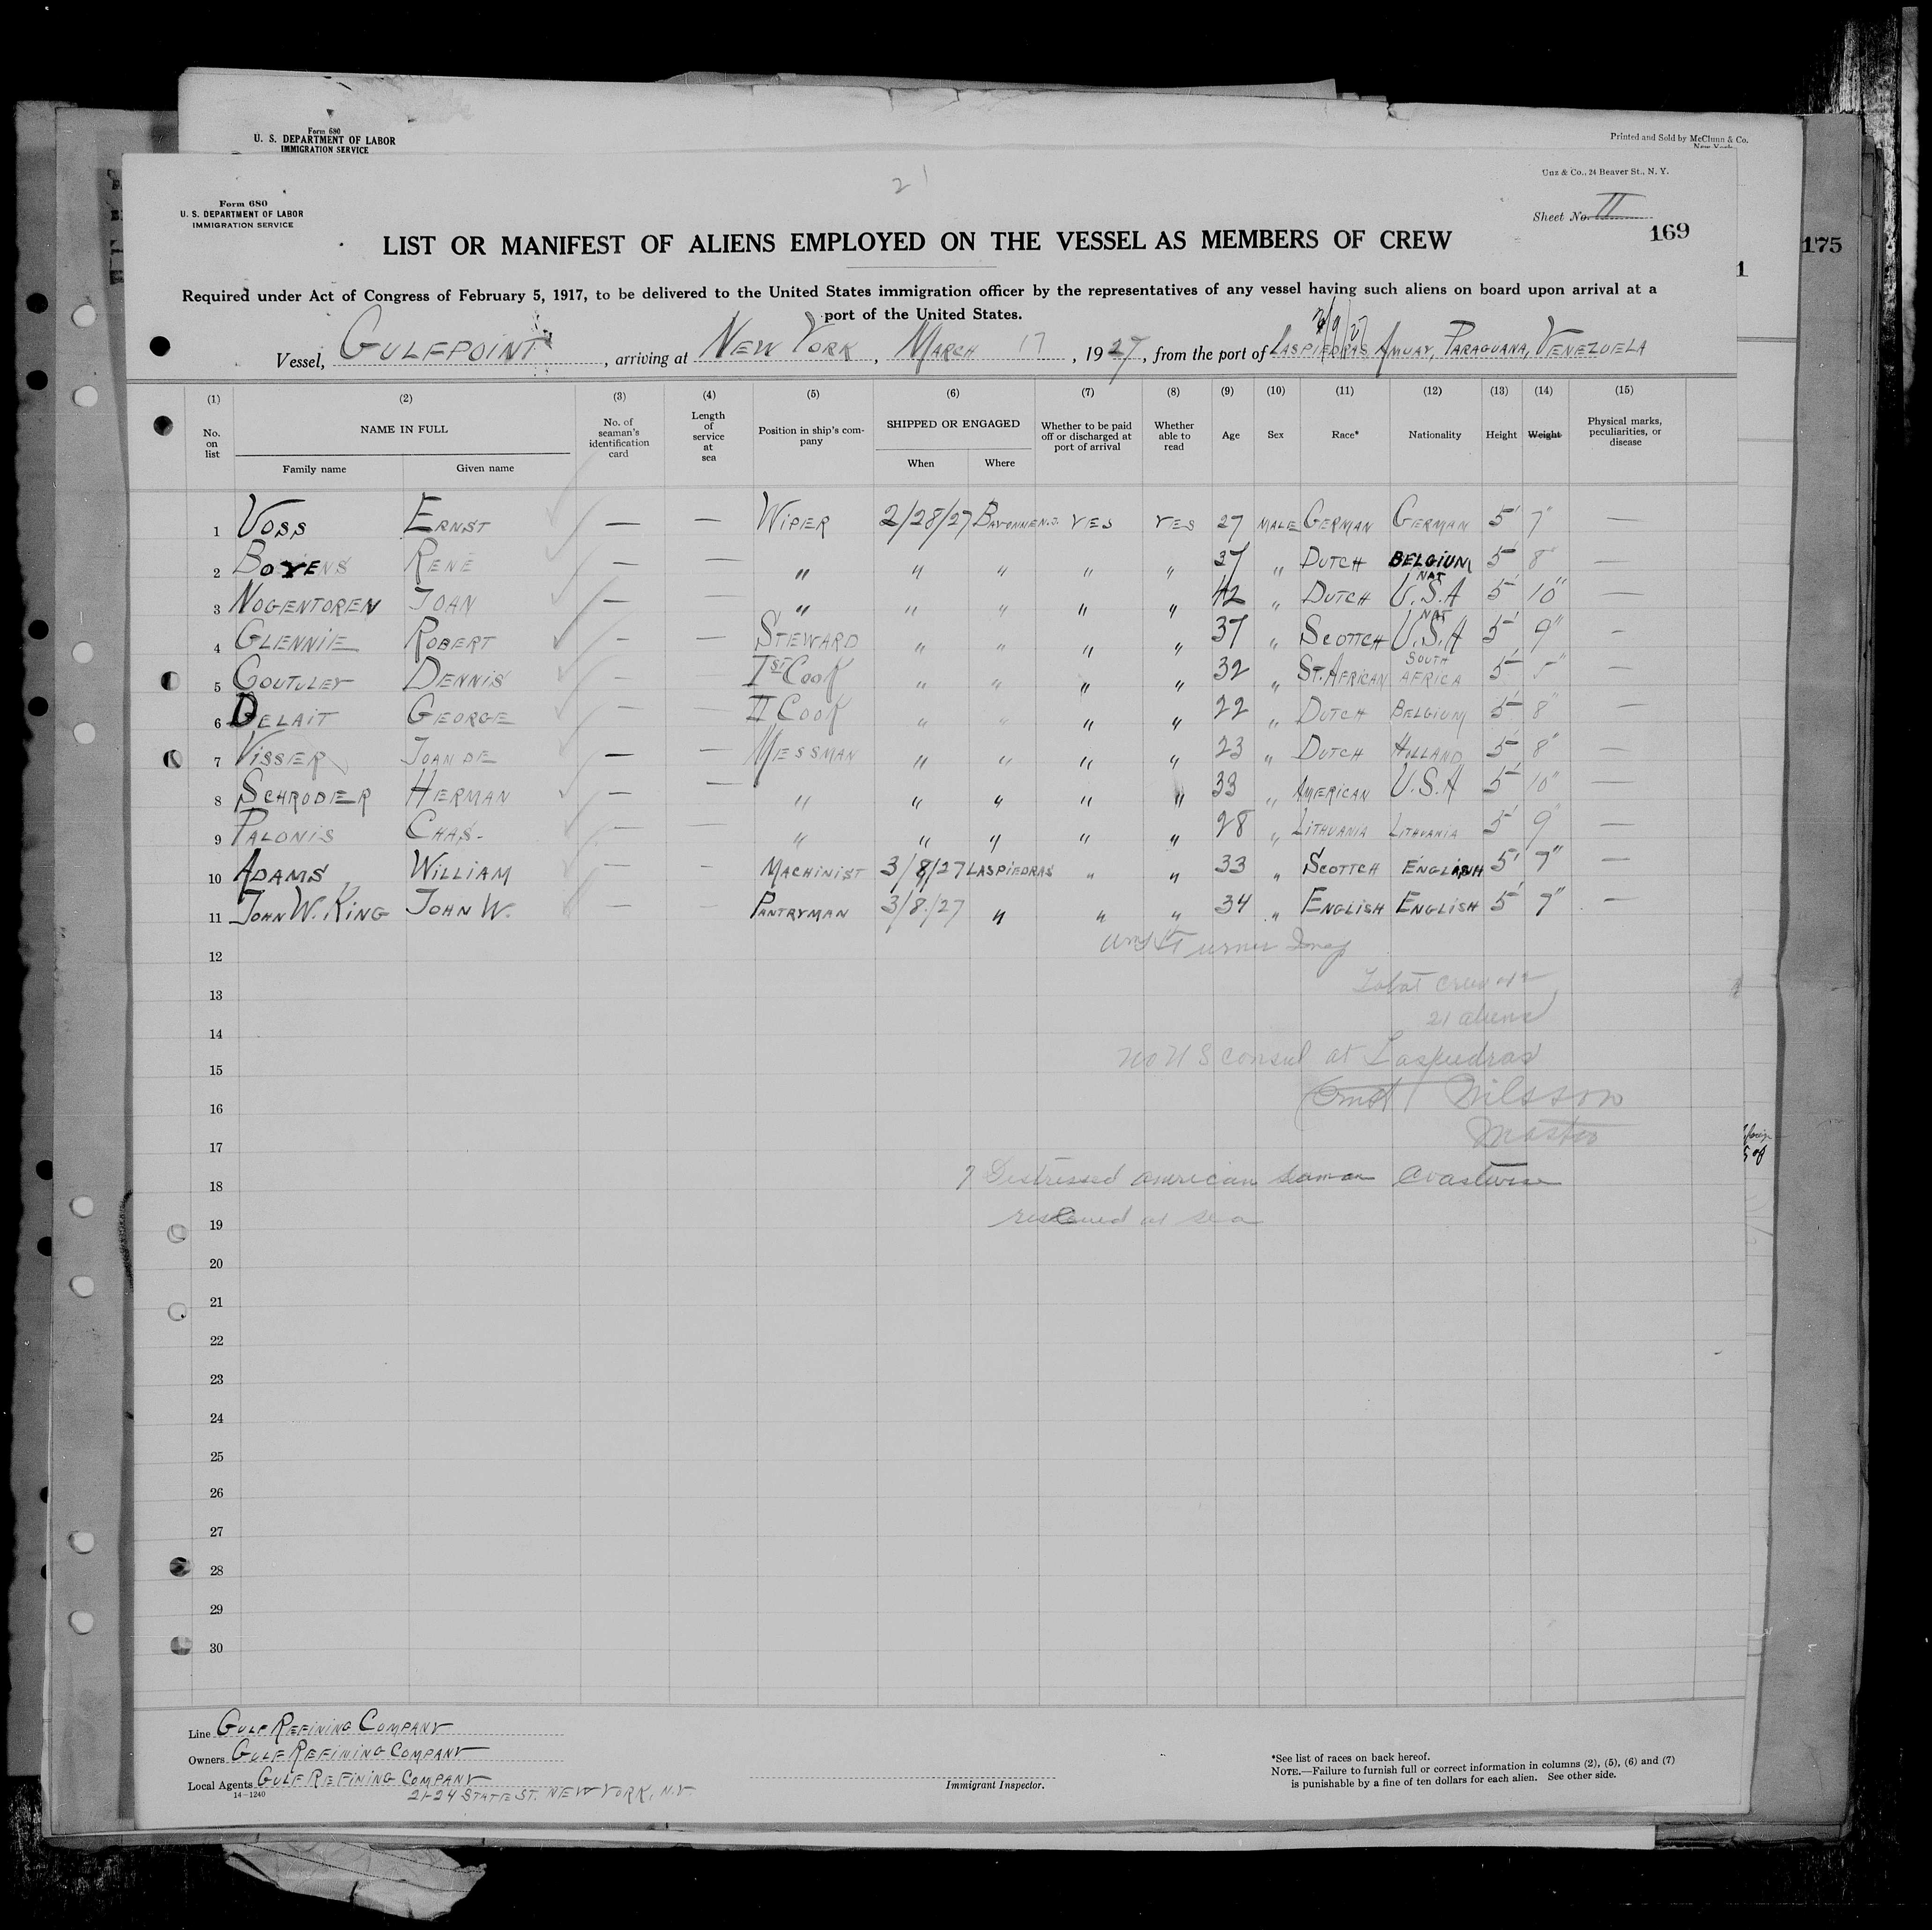 Form 680
U. S. DEPARTMENT OF LABOR
IMMIGRATION SERVICE
Printed and Sold by McClunn & Co.
New York
21
Unz & Co., 24 Beaver St., N. Y.
Form 680
U. S. DEPARTMENT OF LABOR
IMMIGRATION SERVICE
Sheet No. II
169
175
1
LIST OR MANIFEST OF ALIENS EMPLOYED ON THE VESSEL AS MEMBERS OF CREW
Required under Act of Congress of February 5, 1917, to be delivered to the United States immigration officer by the representatives of any vessel having such aliens on board upon arrival at a
port of the United States.
Vessel, GULFPOINT, arriving at NEW YORK, MARCH 17, 1927, from the port of LASPIEDRAS AMUAY, PARAGUANA, VENEZUELA
(1) (2) (3) (4) (5) (6) (7) (8) (9) (10) (11) (12) (13) (14) (15)
No. on list NAME IN FULL No. of seaman's identification card Length of service at sea Position in ship's company SHIPPED OR ENGAGED Whether to be paid off or discharged at port of arrival Whether able to read Age Sex Race* Nationality Height Weight Physical marks, peculiarities, or disease
Family name Given name When Where
1 VOSS ERNST — — WIPER 2/28/27 BAYONNE N.J. YES YES 27 MALE GERMAN GERMAN 5' 7" —
2 BOYENS RENE — — " " " " " 37 " DUTCH BELGIUM 5' 8" —
3 NOGENTOREN JOAN — — " " " " " 42 " DUTCH NAT U.S.A 5' 10" —
4 GLENNIE ROBERT — — STEWARD " " " " 37 " SCOTTCH NAT U.S.A 5' 9" —
5 GOUTULEY DENNIS — — 1ST COOK " " " " 32 " ST. AFRICAN SOUTH AFRICA 5' 5" —
6 DELAIT GEORGE — — II COOK " " " " 22 " DUTCH BELGIUM 5' 8" —
7 VISSER JOAN DE — — MESSMAN " " " " 23 " DUTCH HOLLAND 5' 8" —
8 SCHRODER HERMAN — — " " " " " 33 " AMERICAN U.S.A 5' 10" —
9 PALONIS CHAS. — — " " " " " 28 " LITHUANIA LITHUANIA 5' 9" —
10 ADAMS WILLIAM — — MACHINIST 3/8/27 LASPIEDRAS " " 33 " SCOTTCH ENGLISH 5' 7" —
11 JOHN W. KING JOHN W. — — PANTRYMAN 3/8/27 " " " 34 " ENGLISH ENGLISH 5' 7" —
12 Turner
13 Total crew
14 21 aliens
15 no U S consul at Laspiedras
16 Ernst Nilsson
17 Master
18 7 Distressed american seaman coastwise
19 rescued at sea
20
21
22
23
24
25
26
27
28
29
30
Line GULF REFINING COMPANY
Owners GULF REFINING COMPANY
Local Agents GULF REFINING COMPANY
14—1240
21-24 STATE ST. NEW YORK, N.Y.
Immigrant Inspector.
*See list of races on back hereof.
NOTE.—Failure to furnish full or correct information in columns (2), (5), (6) and (7)
is punishable by a fine of ten dollars for each alien. See other side.